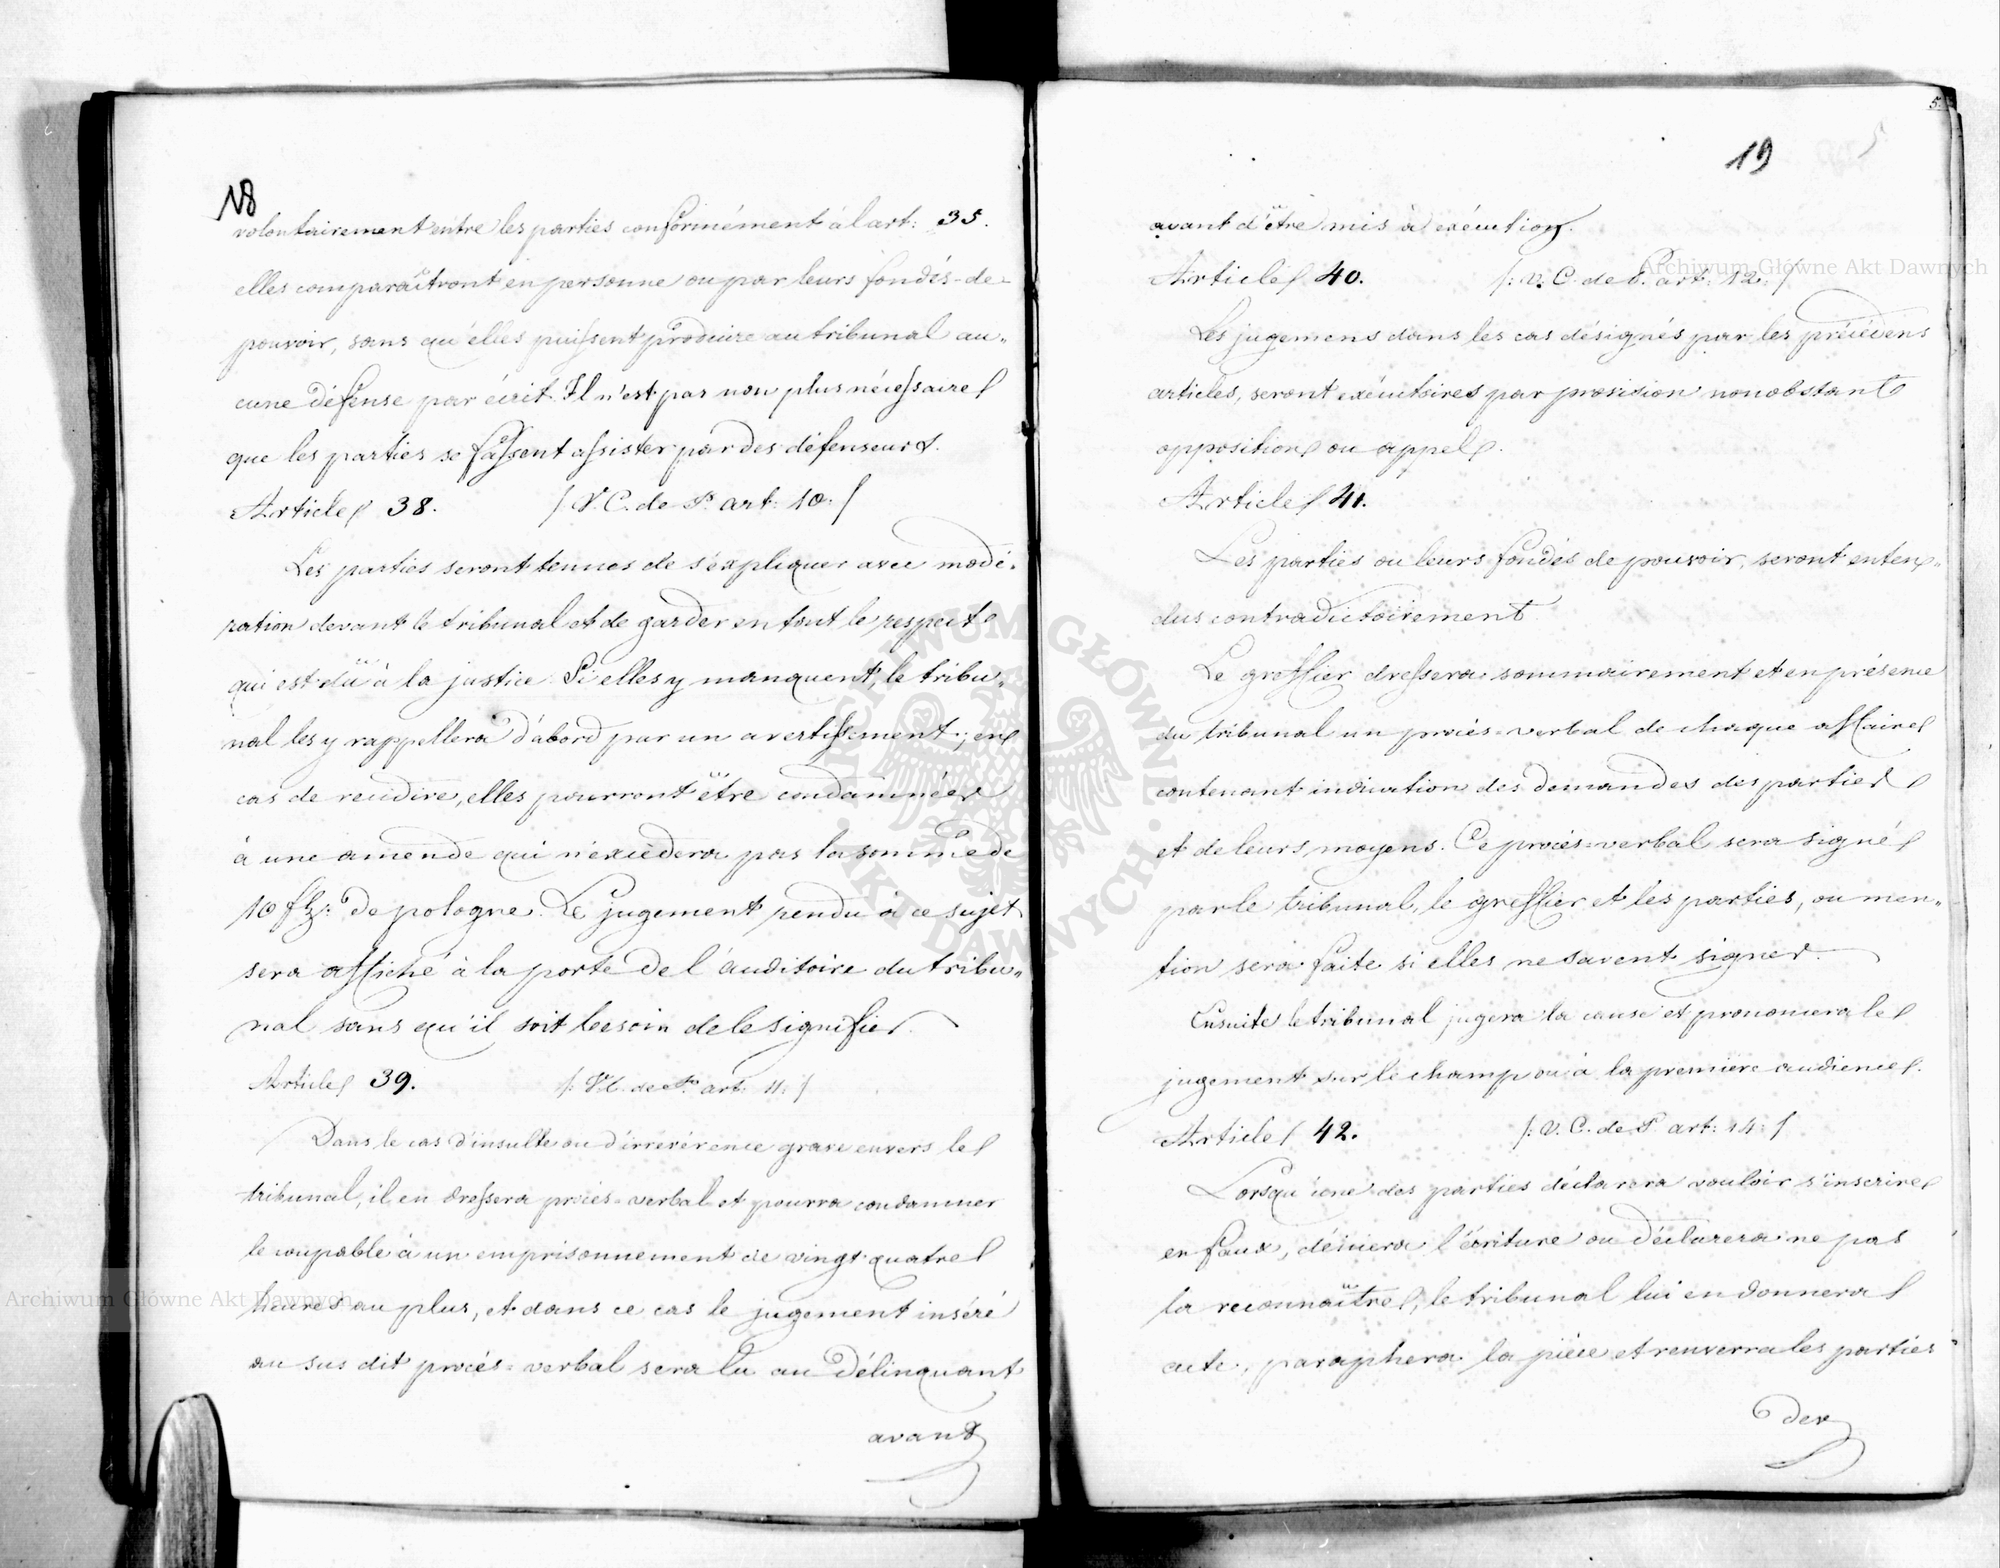 18
volontairement entre les parties conformément à l'art: 35.
elles comparaîtront en personne ou par leurs fondés-de-
pouvoir, sans qu'elles puissent produire au tribunal au„
cune défense par écrit. Il n'est pas non plus nécessaire
que les parties se fassent assister par des défenseurs.
Article 38. /: V. C. de P. art: 10: /
Les parties seront tenues de s'expliquer avec modé„
ration devant le tribunal et de garder en tout le respect
qui est dû à la justice. Si elles y manquent, le tribu„
nal les y rappellera d'abord par un avertissement; en
cas de récidive, elles pourront être condamnées
à une amende qui n'excédera pas la somme de
10 flzs: de pologne. Le jugement rendu à ce sujet
sera affiché à la porte de l'auditoire du tribu„
nal sans qu'il soit besoin de le signifier.
Article 39. /: V. C. de P. art: 11: /
Dans le cas d'insulte ou d'irrévérence grave envers le
tribunal, il en dressera procès=verbal et pourra condamner
le coupable à un emprisonnement de vingt quatre
heures au plus, et dans ce cas le jugement inséré
au sus dit procès=verbal sera lu au délinquant
avant
5.
19
avant d'être mis à exécution.
Article 40. /: V. C. de P. art: 12: /
Les jugemens dans les cas désignés par les précédens
articles, seront exécutoires par provision nonobstant
opposition ou appel.
Article 41.
Les parties ou leurs fondés de pouvoir, seront enten„
dus contradictoirement.
Le greffier dressera sommairement et en présence
du tribunal un procès=verbal de chaque affaire
contenant indication des demandes des parties
et de leurs moyens. Ce procès=verbal sera signé
par le tribunal, le greffier et les parties, ou men„
tion sera faite si elles ne savent signer.
Ensuite le tribunal jugera la cause et prononcera le
jugement sur le champ ou à la première audience.
Article 42. /: V. C. de P. art: 14: /
Lorsqu'une des parties déclarera vouloir s'inscrire
en faux, déniera l'écriture ou déclarera ne pas
la reconnaître, le tribunal lui en donnera
acte, paraphera la pièce et renverra les parties
dev
Archiwum Główne Akt Dawnych
Archiwum Główne Akt Dawnych
ARCHIWUM GŁÓWNE · AKT DAWNYCH ·